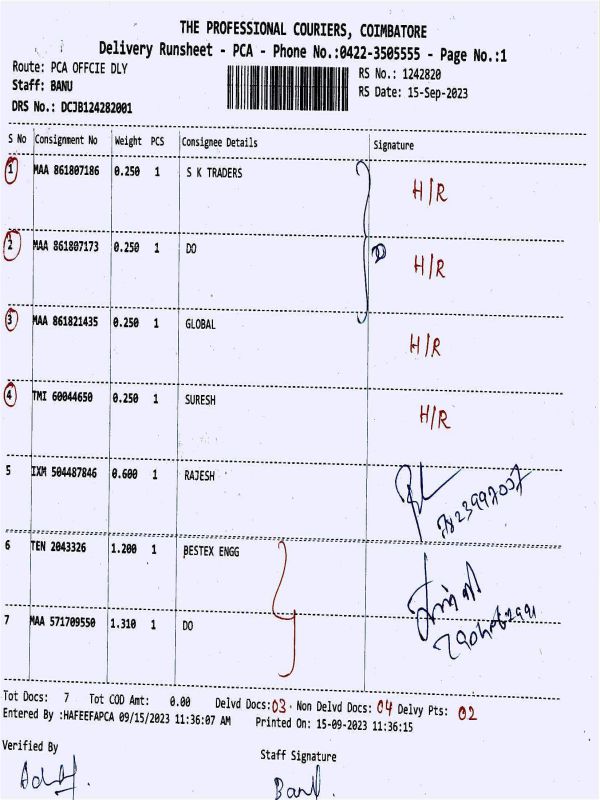 THE PROFESSIONAL COURIERS, COIMBATORE
Delivery Runsheet - PCA - Phone No.:0422-3505555 - Page No.:1
Route: PCA OFFCIE DLY
Staff: BANU
DRS No.: DCJB124282001
RS No.: 1242820
RS Date: 15-Sep-2023
S No Consignment No Weight PCS Consignee Details Signature
1 MAA 861807186 0.250 1 S K TRADERS H/R
2 MAA 861807173 0.250 1 DO H/R
3 MAA 861821435 0.250 1 GLOBAL H/R
4 TMI 60044650 0.250 1 SURESH H/R
5 IXM 504487846 0.600 1 RAJESH
6 TEN 2043326 1.200 1 BESTEX ENGG
7 MAA 571709550 1.310 1 DO
Tot Docs: 7 Tot COD Amt: 0.00 Delvd Docs: 03 Non Delvd Docs: 04 Delvy Pts: 02
Entered By :HAFEEFAPCA 09/15/2023 11:36:07 AM Printed On: 15-09-2023 11:36:15
Verified By
Staff Signature